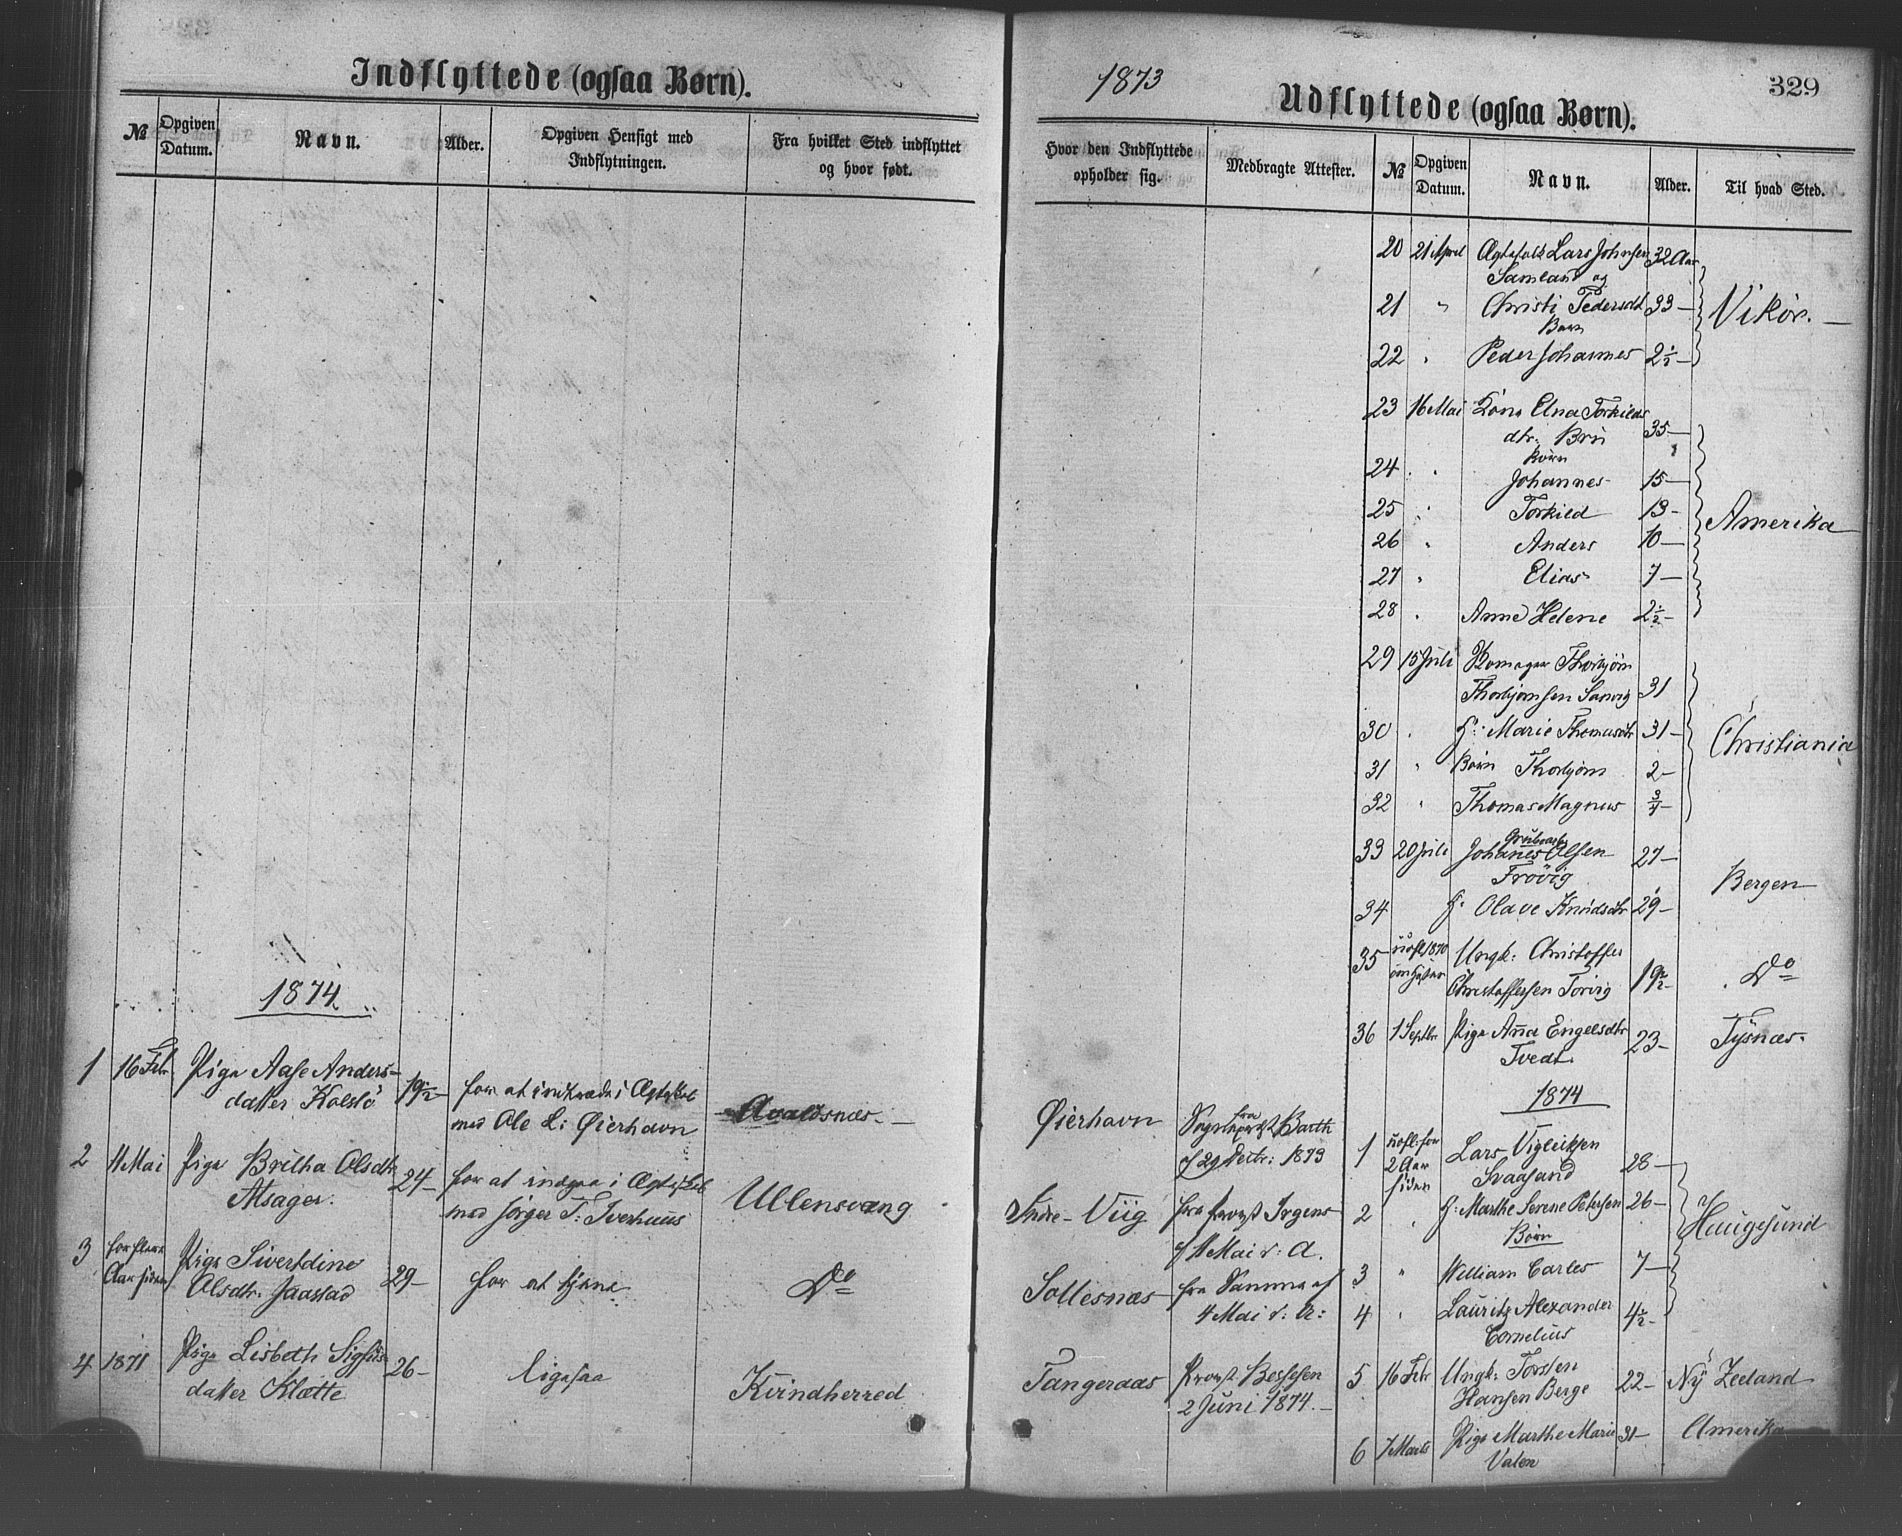 Indflyttede (ogsaa Børn).
№
Opgiven Datum.
Navn.
Alder.
Opgiven Hensigt med Indflytningen.
Fra hvilket Sted indflyttet og hvor født.
1874
1 16 Febr Pige Aase Anders-
datter Kolslö 19½ for at indtræde i Ægteskab
med Ole L: Øierhavn Avaldsnæs
2 11 Mai Pige Britha Olsdtr
Alsager. 24 for at indgaa i Ægteskab
med Jörger T: Tverhuus Ullensvang
3 for flere
Aar siden Pige Sivertdine
Olsdtr. Jaastad 29 for at tjene Do
4 1871 Pige Lisbeth Sigfus
datter Klætte 26 ligesaa Kvindherred
1873
Udflyttede (ogsaa Børn).
329
Hvor den Indflyttede opholder sig.
Medbragte Attester.
№
Opgiven Datum.
Navn.
Alder.
Til hvad Sted.
Øierhavn Sogneprest fra Barth
af 29 Decbr: 1873
Indre-Viig fra Provst Irgens
af 11 Mai d: A.
Sollesnæs fra Samme af
4 Mai d: A:
Tangeraas Provst Bessesen
2 Juni 1874.
20 21 April Ægtefolk Lars Johnsen 32 Aar
Samland og
21 " Christi Pedersdt 33 Vikör.
Barn
22 " Peder Johannes 2½
23 16 Mai Kone Elna Torkilds
dtr. Bru 35
Börn
24 " Johannes 15
25 " Torkild 13 Amerika
26 " Anders 10
27 " Elias 7
28 " Anne Helene 2½
29 15 Juli Thorbjörn
Thorbjörnsen Sanvig 31
30 " H: Marie Thomasdtr 31 Christiania
31 " Börn Thorbjörn 2
32 " Thomas Magnus ¾
33 20 Juli Johannes Olsen 27
Frövig Bergen
34 H: Olave Knudsdtr 29
35 uofl 1870 Ungk: Christoffer
Christoffersen Torvig 19½ Do
36 1 Septbr Pige Anna Engelsdtr 23 Tysnæs
Tvedt
1874
1 uofl: for
2 Aar
siden Lars Vigleiksen
Svaasand 28
2 " H: Marthe Serene Petersen 26 Haugesund
Börn
3 " William Carles 7
4 " Lauritz Alexander 4½
Cornelius
5 16 Febr Ungk: Torsten
Hansen Berge 22 Ny Zeeland
6 7 Marts Pige Marthe Marie 31 Amerika
Valen